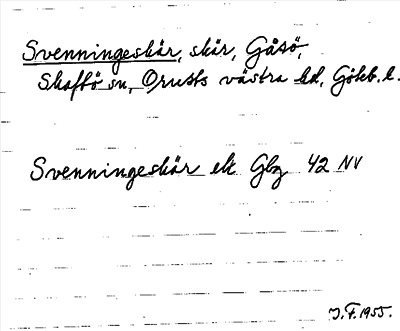 Svenningeskär, skär, Gåsö,
Skaftö sn, Orusts västra hd, Göteb. l.
Svenningeskär ek Gbg 42 NV
J.F. 1955.